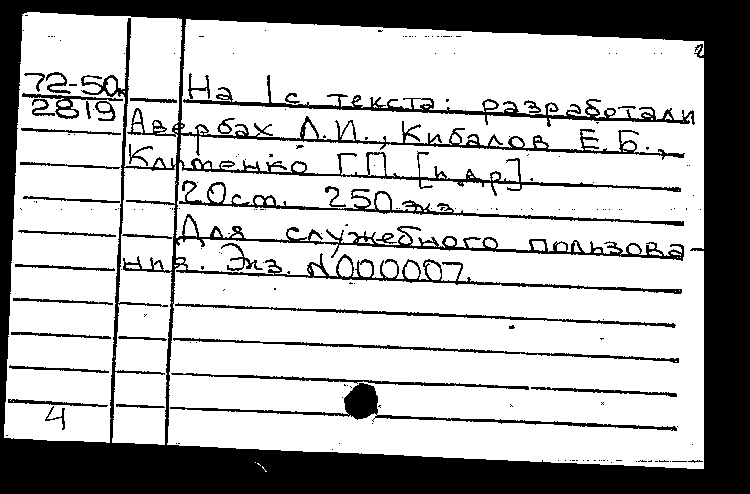 2
72-50к На 1 с. текста: разработали
2819 Авербах Л.И., Кибалов Е.Б.,
Клименко Г.П. [и др].
20см. 250экз.
Для служебного пользова-
ния. Экз. №000007.
4